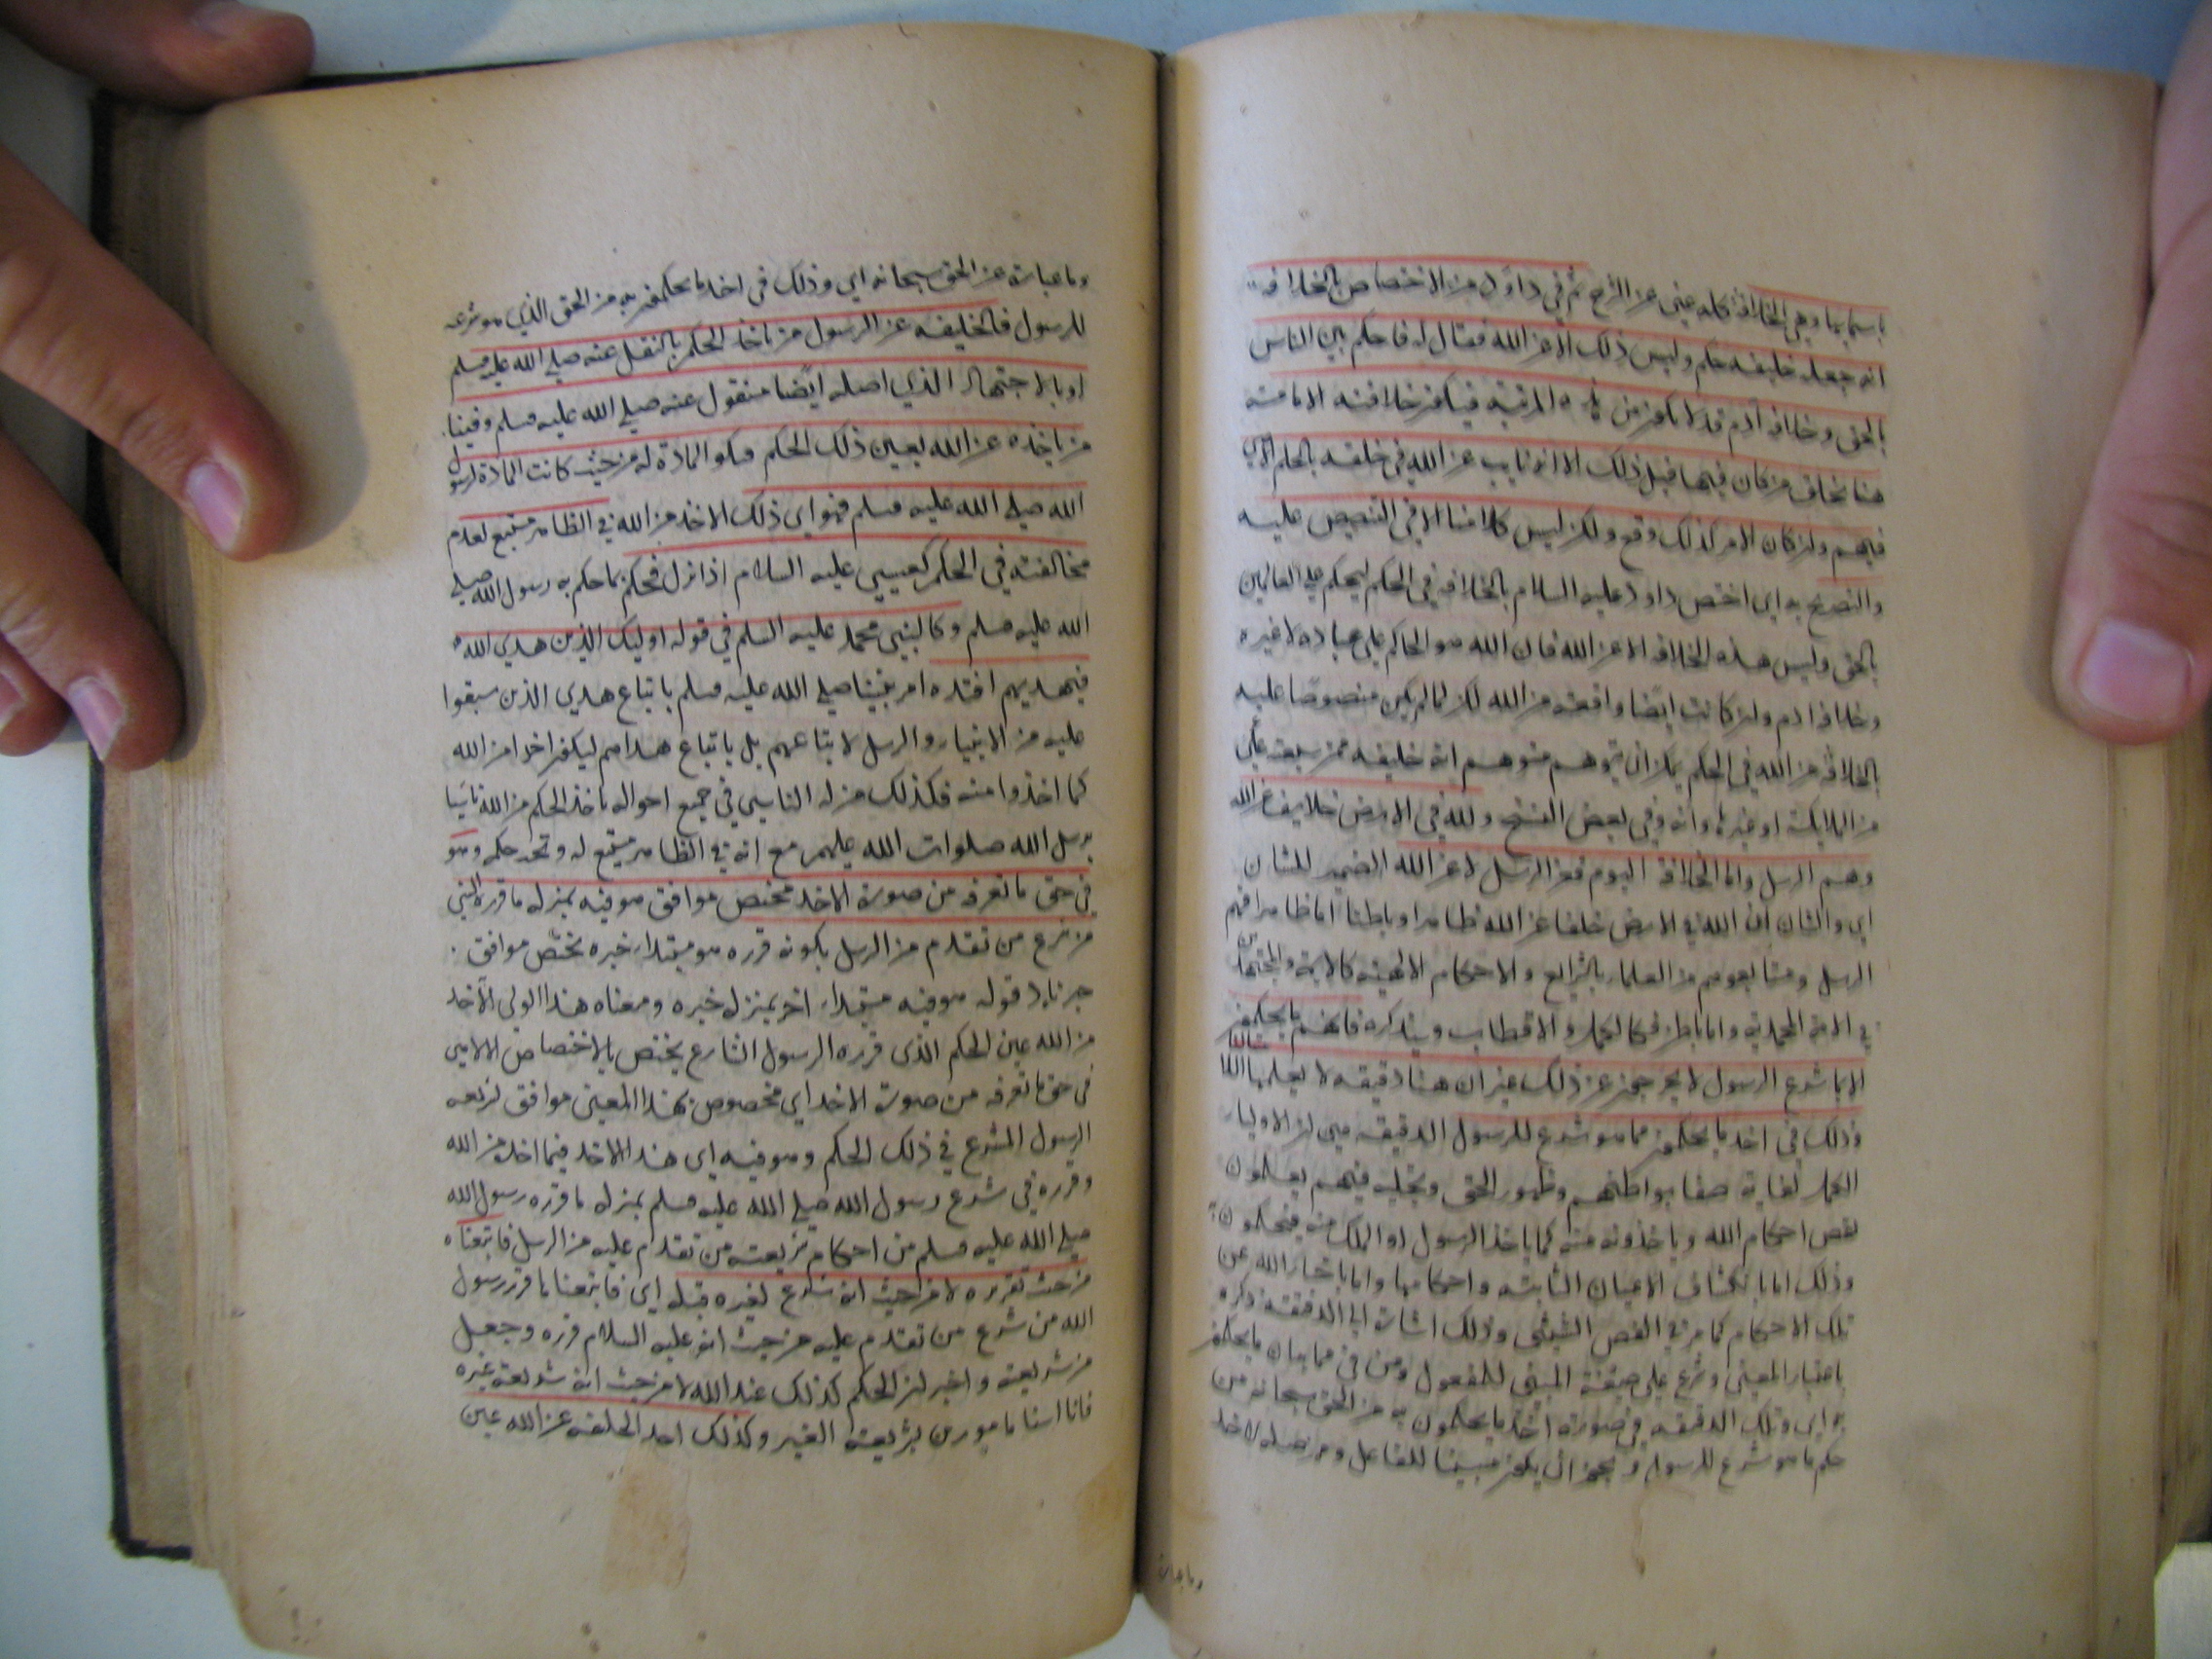 باسمائها وهي الخلافة كله عنى عن الشرح ثم في داود من الاختصاص بالخلافة
انه جعله خليفة حكم وليس ذلك الا عن الله فقال له فاحكم بين الناس
بالحق وخلافة آدم قد لا يكون من هذه المرتبة فيكون خلافته الامامته
هنا بخلف من كان فيها قبل ذلك لا انه نايب عن الله في خلقه بالحكم الالهي
فيهم وان كان الامر كذلك وقع ولكن ليس كلامنا الا في التنصيص عليه
والتصريح به اي اختص داود عليه السلام بالخلافة في الحكم ليحكم على العالمين
بالحق وليس هذه الخلافة الا عن الله فان الله هو الحاكم على عباده لا غيره
وخلافة ادم وان كانت ايضا واقعة من الله لكن لما لم يكن منصوصا عليه
بالخلافة من الله في الحكم يمكن ان يتوهم متوهم انه خليفة عمن سبقه
من الملايكة او غيرها وانه وفي بعض النسخ ولله في الارض خلايف عن الله
وهم الرسل واما الخلافة اليوم فعن الرسل لا عن الله الضمير للشان
اي والشان ان لله في الارض خلفا عن الله ظاهرا وباطنا اما ظاهرا فهم
الرسل ومتابعوهم من العلماء بالشرايع والاحكام الالهية كالايمة والمجتهدين
في الامة المحمدية واما باطنا فكالكمل والاقطاب وتذكره فانهم ما يحكمون
الا بما شرع الرسول لا يخرجون عن ذلك غير ان هنا دقيقة لا يعلمها الا امثالنا
وذلك في اخذ ما يحكمون مما هو شرع للرسول الدقيقة هي ان الاولياء
الكمل لغاية صفا بواطنهم وظهور الحق وتجليه فيهم يعلمون
بعض احكام الله وياخذونه منه كما ياخذ الرسول او الملك منه فيحكمون
وذلك اما بانكشاف الاعيان الثابتة واحكامها واما باخبار الله عن
تلك الاحكام كما مر في الفص الشيثي وذلك اشارة الى الدقيقة ذكره
باعتبار المعنى وشرع على صيغة المبني للمفعول ومن في مما بيان ما يحكمون
به اي وتلك الدقيقة في صورة اخذ ما يحكمون به من الحق سبحانه من
حكم ما هو شرع للرسول ويجوز ان يكون مبينا للفاعل ومن صلة لاخذ
وما عبارة
وما عبارة عن الحق سبحانه اي وذلك في اخذ ما يحكمون به من الحق الذي هو شرعه
للرسول فالخليفة عن الرسول من ياخذ الحكم بالنقل عنه صلى الله عليه وسلم
او بالاجتهاد الذي اصله ايضا منقول عنه صلى الله عليه وسلم وفينا
من ياخذه عن الله بعين ذلك الحكم فيكون المادة له من حيث كانت المادة لرسول
الله صلى الله عليه وسلم فهو اي ذلك الاخذ من الله في الظاهر متبع لعدم
مخالفته في الحكم كعيسى عليه السلام اذا نزل فحكم بما حكم به رسول الله صلى
الله عليه وسلم وكالنبي محمد عليه السلم في قوله اوليك الذين هدى الله
فبهديهم اقتده امر نبينا صلى الله عليه وسلم باتباع هدي الذين سبقوا
عليه من الانبياء والرسل لا بتباعهم بل باتباع هداهم ليكون اخذا من الله
كما اخذوا منه فكذلك من له التاسي في جميع احواله ياخذ الحكم من الله تاسيا
برسل الله صلوات الله عليهم مع انه في الظاهر متبع له وتحت حكمه وهو
في حق ما تعرفه من صورة الاخذ مختص موافق هو فيه بمنزلة ما قرره النبي
من شرع من تقدم من الرسل بكونه قرره هو مبتداء خبره مختص موافق
قوله هو فيه مبتداء اخر بمنزلة خبره ومعناه هذا الولي الآخذ
من الله عين الحكم الذي قرره الرسول الشارع يختص بالاختصاص الالهي
في حق ما تعرفه من صورة الاخذ اي مخصوص بهذا المعنى موافق لشريعة
الرسول المشرع في ذلك الحكم وهو فيه اي هذا الاخذ فيما اخذ من الله
وقرره في شرع رسول الله صلى الله عليه وسلم بمنزلة ما قرره رسول الله
صلى الله عليه وسلم من احكام شريعة من تقدم عليه من الرسل فاتبعناه
من حيث تقريره لا من حيث انه شرع لغيره قبله اي فاتبعنا ما قرر رسول
الله من شرع من تقدم عليه من حيث انه عليه السلام قرره وجعل
من شريعته واخبر ان الحكم كذلك عند الله لا من حيث انه شريعة غيره
فانا لسنا مامورين بشريعة الغير وكذلك اخذ الخليفة عن الله عين